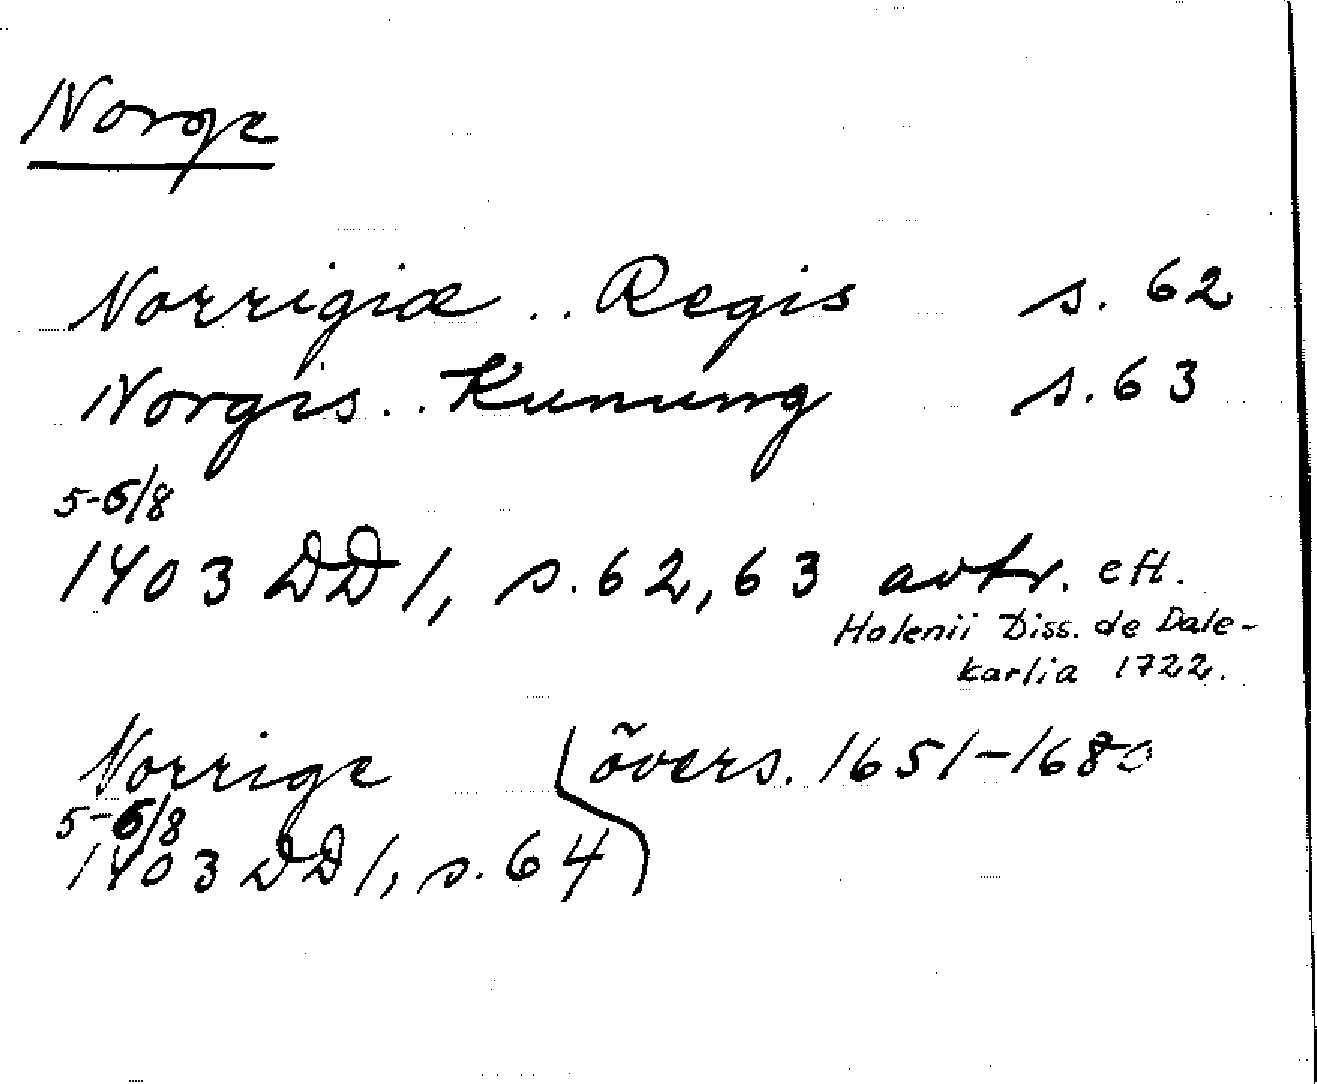 Norge
Norrigiæ .. Regis s. 62
Norgis .. Kunung s. 63
5-6/8
1403 DD 1, s. 62, 63 avtr. eft.
Holenii Diss. de Dale-
karlia 1722.
Norrige övers. 1651-1680
5-6/8
1403 DD 1, s. 64